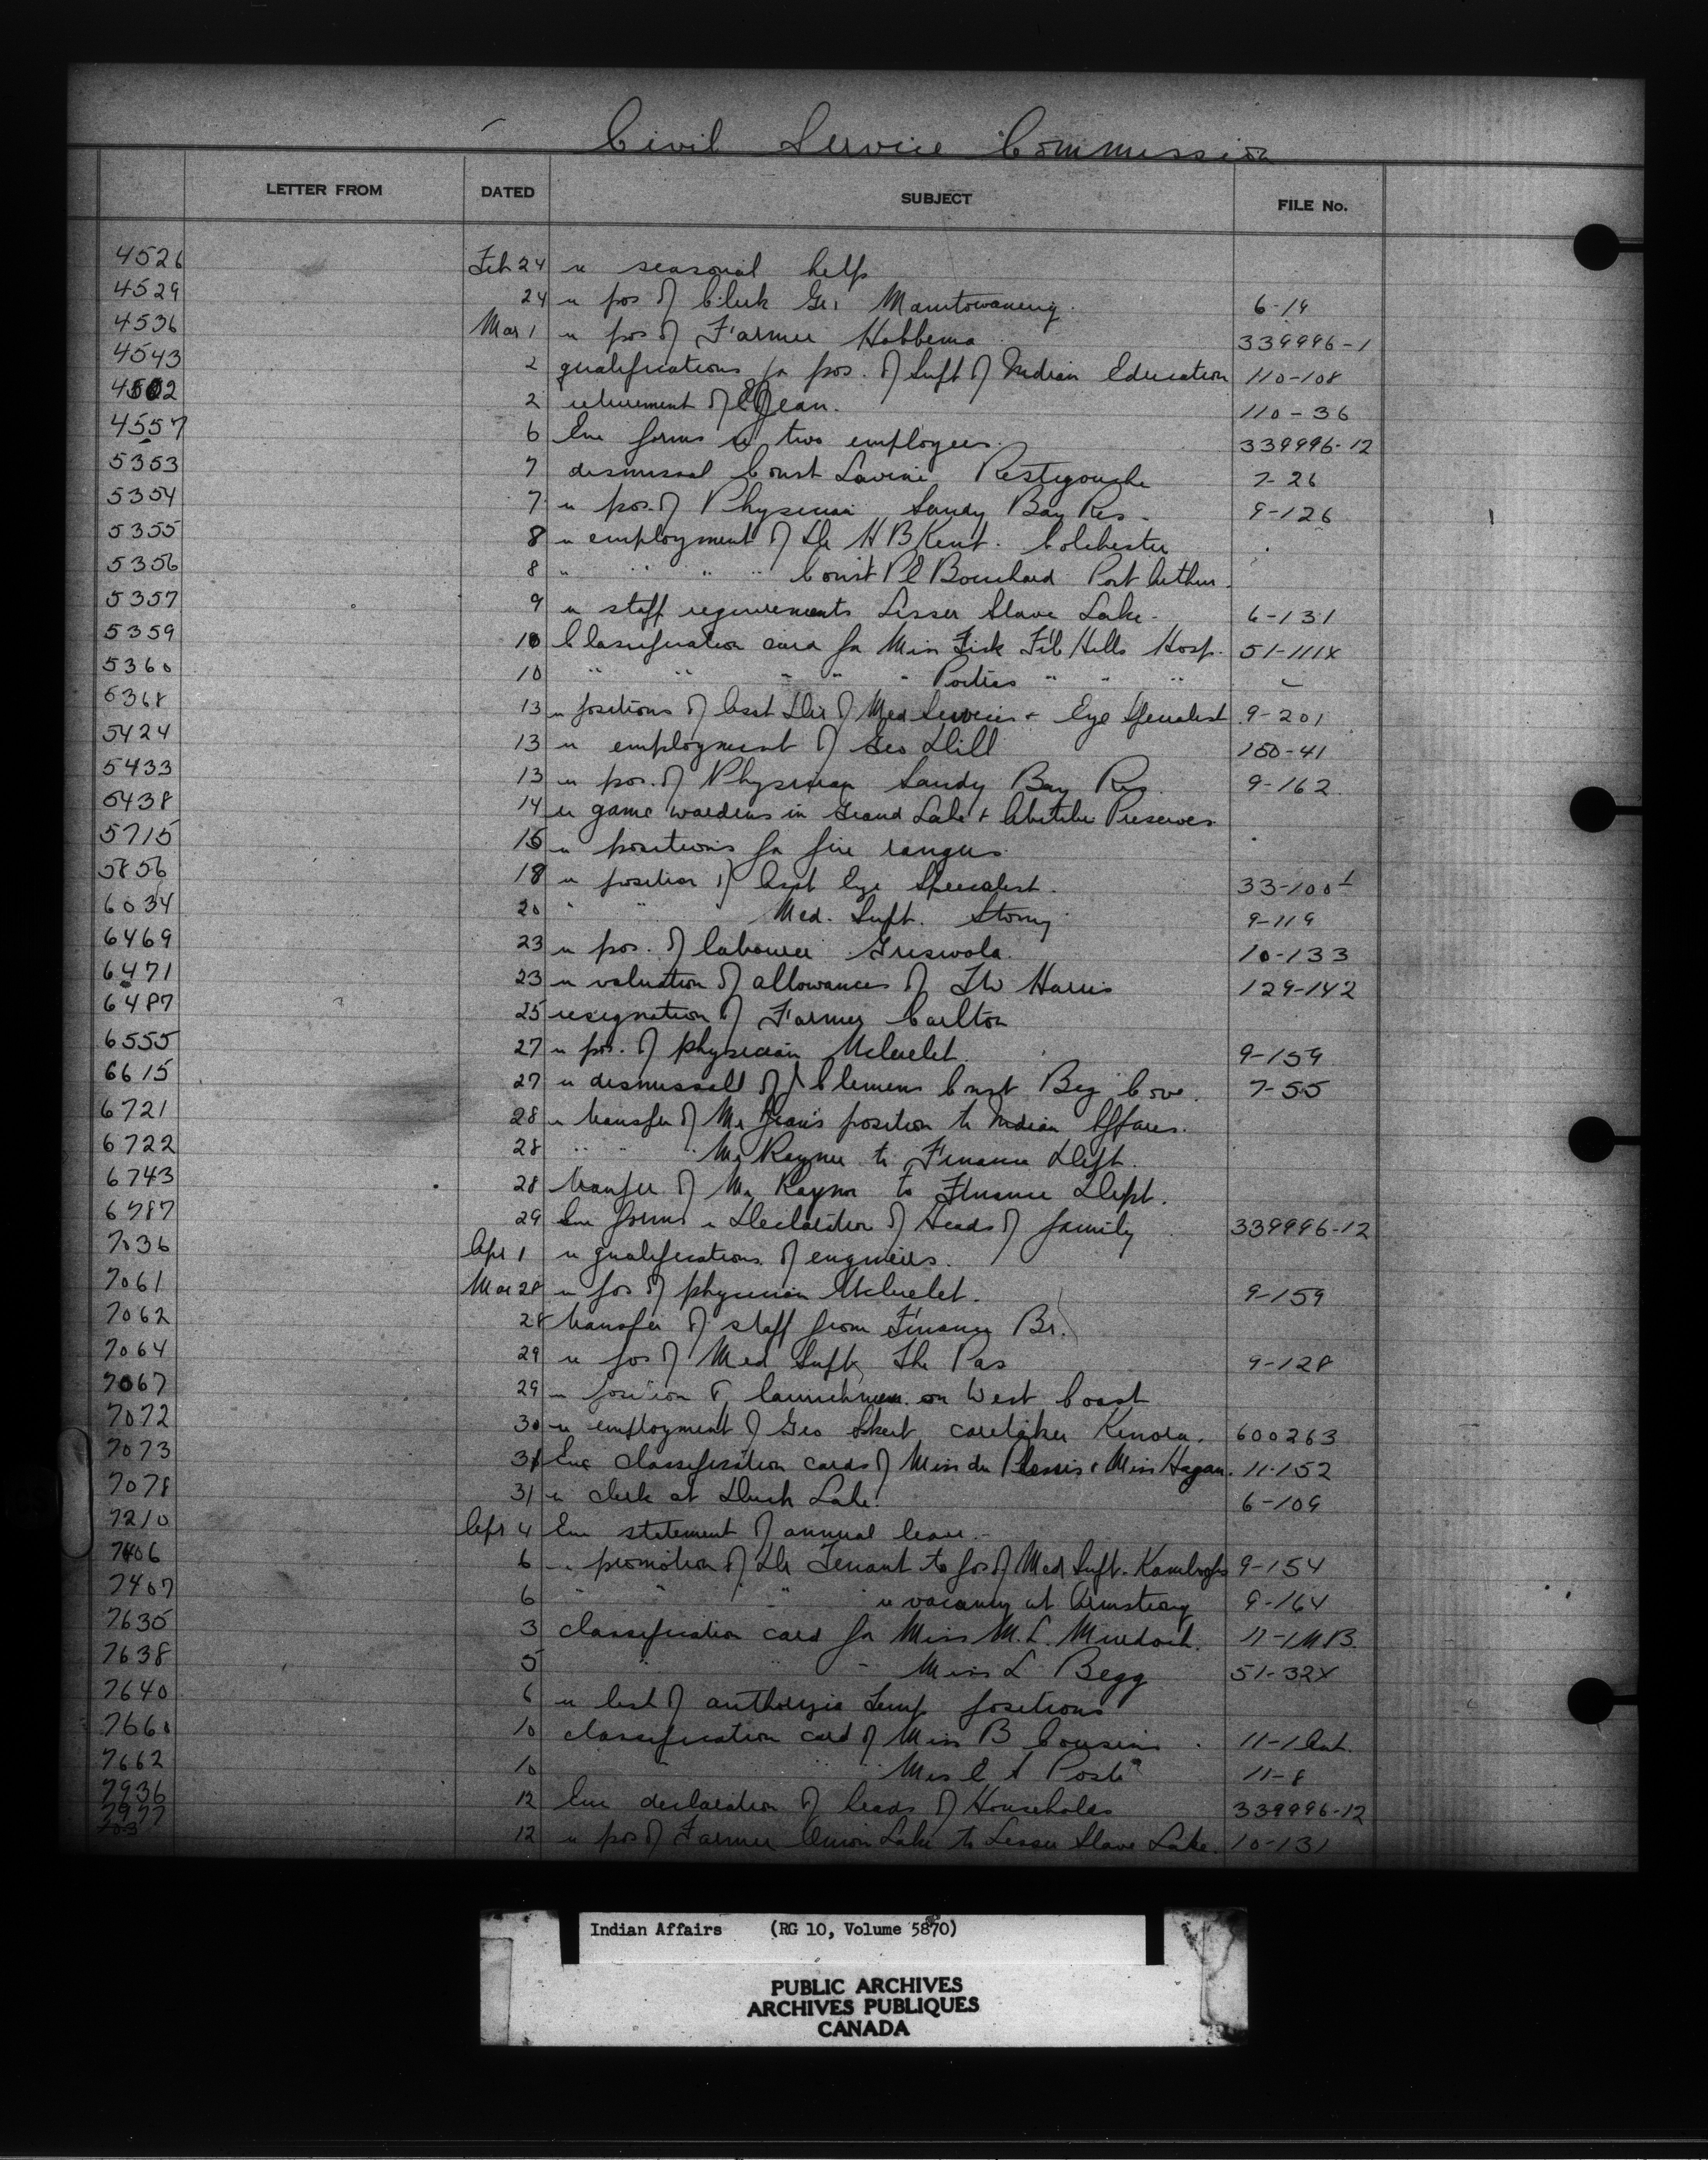 Civil Service Commission
LETTER FROM DATED SUBJECT FILE No.
4526 Feb 24 re seasonal help
4529 24 re pos of Clerk Gr. 1 Manitowaning. 6-19
4536 Mar 1 re pos of Farmer Hobbema 339996-1
4543 2 qualifications for pos. of Supt of Indian Education 110-108
2 retirement of Jean. 110-36
4557 6 Enc forms re two employees. 339996-12
5353 7 dismissal Const Lavine Restigouche 7-26
5354 7 re pos. of Physician Sandy Bay Res. 9-126
5355 8 re employment of Dr H B Kent. Colchester
5356 8 " " " " Const Bouchard Port Arthur.
5357 9 re staff requirements Lesser Slave Lake. 6-131
5359 10 Classification card for Miss Fisk File Hills Hosp. 51-111X
5360 10 " " " " " " " "
5368 13 re positions of Asst Dir of Med Services + Eye Specialist 9-201
5424 13 re employment of Geo Dill 150-41
5433 13 re pos. of Physician Sandy Bay Res. 9-162
5438 14 re game wardens in Grand Lake + Abitibi Preserves.
5715 15 re positions for fire rangers.
5856 18 re position of Asst Eye Specialist. 33-100
6034 20 " " " Med. Supt. Stony 9-119
6469 23 re pos. of labourer Griswold. 10-133
6471 23 re valuation of allowances of Harris 129-142
6487 25 resignation of Farmer Carlton
6555 27 re pos. of physician Ucluelet. 9-159
6615 27 re dismissall of J Clemens Const Big Cove. 7-55
6721 28 re transfer of Mr Jean's position to Indian Affairs.
6722 28 " " " Mr Raynor to Finance Dept.
6743 28 transfer of Mr Raynor to Finance Dept.
6787 29 Enc forms re Declaration of Heads of family 339996-12
7036 Apr 1 re qualifications of engineers.
7061 Mar 28 re pos of physician Ucluelet. 9-159
7062 28 transfer of staff from Finance Br.
7064 29 re pos of Med Supt The Pas 9-128
7067 29 re position of launchmen on West Coast
7072 30 re employment of Geo caretaker Kenora. 600263
7073 31 Enc classification cards of Miss du Plessis & Miss Hagan. 11-152
7078 31 re clerk at Duck Lake. 6-109
7210 Apr 4 Enc statement of annual leave.-
7406 6 re promotion of Dr Tenant to pos of Med Supt. Kamloops 9-154
7407 6 " " " " re vacancy at Armstrong 9-164
7635 3 classification card for Miss M. L. Murdoch. 11-1MB
7638 5 " " " Miss L Begg 51-32X
7640 6 re list of Temp positions
7660 10 classification card of Miss B Cousins. 11-1
7662 10 11-8
7936 12 Enc declaration of heads of Households 339996-12
7977 12 re pos of Farmer Onion Lake to Lesser Slave Lake. 10-131
Indian Affairs (RG 10, Volume 5870)
PUBLIC ARCHIVES
ARCHIVES PUBLIQUES
CANADA